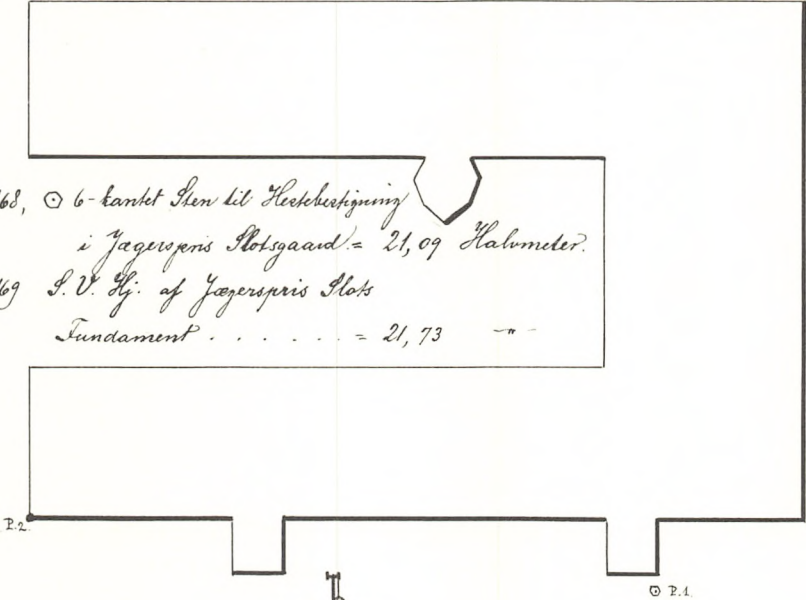 68, ⊙ 6-kantet Sten til Hestebestigning
i Jægerspris Slotsgaard = 21,09 Halvmeter.
69 S. V. Hj. af Jægerspris Slots
Fundament . . . . . . = 21,73 -"-
P.2.
P.1.